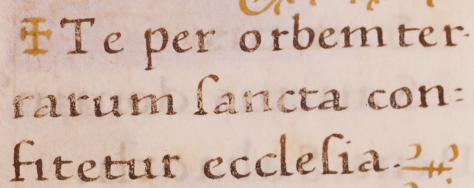 ‡ Te per orbem ter-
rarum ſancta con=
fitetur eccleſia.